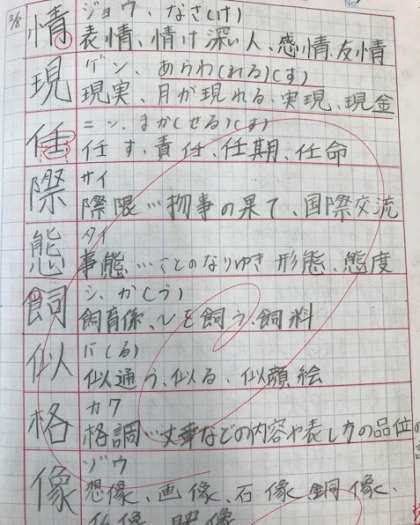 情 ジョウ、なさ(け)
表情、情け深い人、感情、友情
現 ゲン、あらわ(れる)(す)
現実、月が現れる、実現、現金
任 ニン、まか(せる)(す)
任す、責任、任期、任命
際 サイ
際限…物事の果て、国際交流
態 タイ
事態…ことのなりゆき 形態、態度
飼 シ、か(う)
飼育係、飼う、飼料
似 に(る)
似通う、似る、似顔絵
格 カク
格調…文章などの内容や表し方の品位の
像 ゾウ
想像、画像、石像、銅像、
仏像、映像